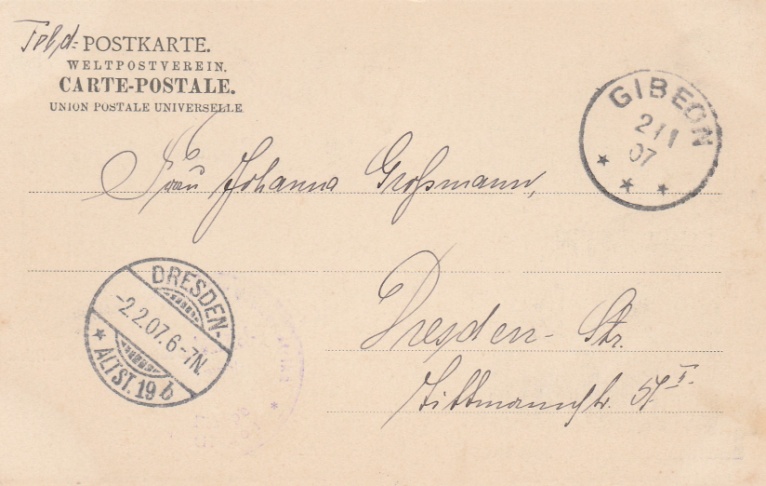 Feld-POSTKARTE.
WELTPOSTVEREIN.
CARTE-POSTALE.
UNION POSTALE UNIVERSELLE
GIBEON
2/1
07
Frau Johanna Großmann,
Dresden- Str.
Wittmannstr. 57 I.
DRESDEN-
-2.2.07.6-7N.
* ALTST. 19 b